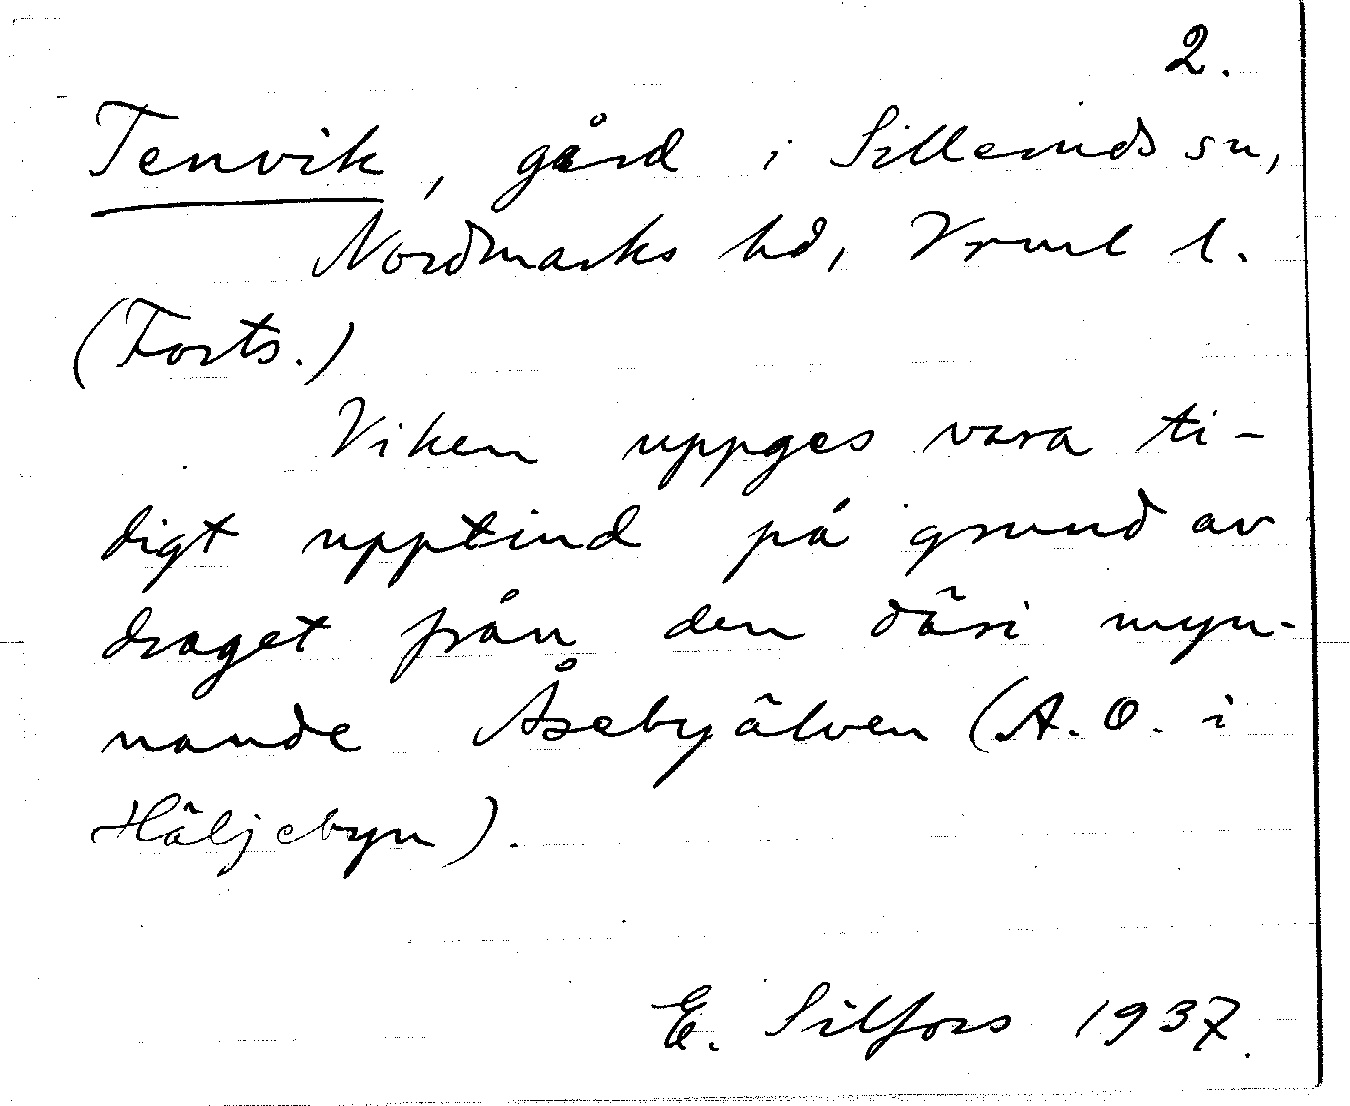 2.
Tenvik, gård i Silleruds sn,
Nordmarks hd, Vrml l.
(Forts.)
Viken uppges vara ti-
digt upptind på grund av
draget från den däri myn-
nande Åsebyälven (A. O. i
Häljebyn).
E. Silfors 1937.